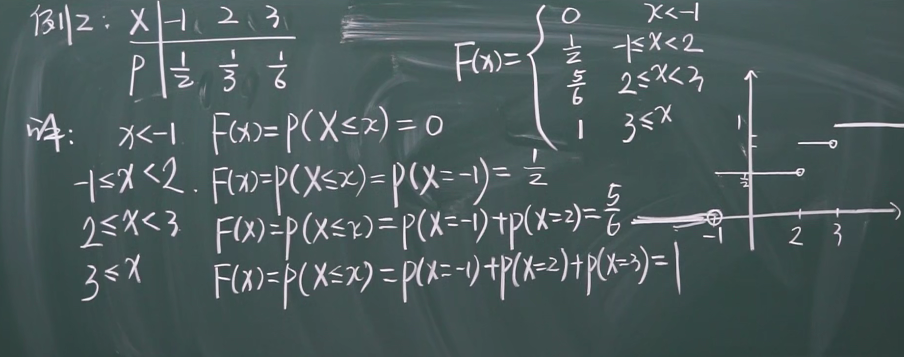 例2: X | -1 2 3
P | 1/2 1/3 1/6
F(x)= { 0 x<-1
1/2 -1≤x<2
5/6 2≤x<3
1 3≤x
解: x<-1 F(x)=P(X≤x)=0
-1≤x<2. F(x)=P(X≤x)=P(X=-1)=1/2
2≤x<3 F(x)=P(X≤x)=P(X=-1)+P(X=2)=5/6
3≤x F(x)=P(X≤x)=P(X=-1)+P(X=2)+P(X=3)=1
1
1/2
-1 2 3